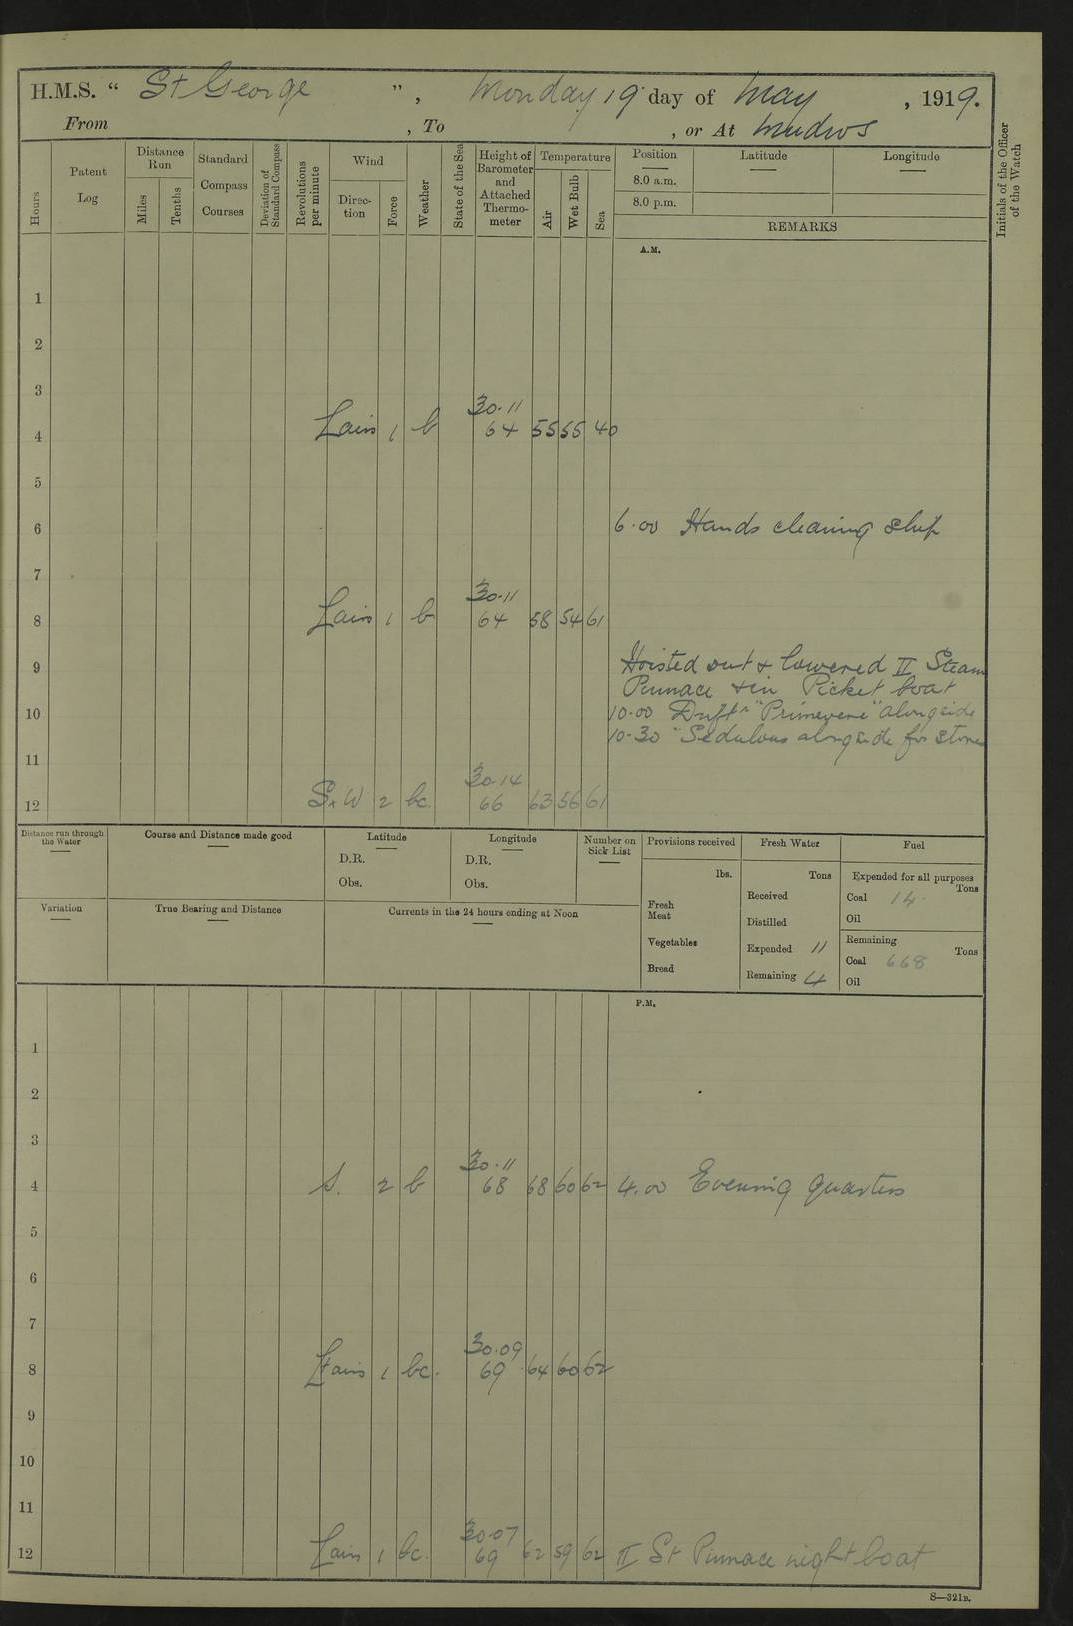 H.M.S. “ St George ” , Monday 19 day of May , 1919.
From , To , or At Mudros
Hours
Patent Log
Distance Run
Miles
Tenths
Standard Compass Courses
Deviation of Standard Compass
Revolutions per minute
Wind
Direction
Force
Weather
State of the Sea
Height of Barometer and Attached Thermometer
Temperature
Air
Wet Bulb
Sea
Position
8.0 a.m.
8.0 p.m.
Latitude
Longitude
REMARKS
Initials of the Officer of the Watch
A.M.
1
2
3
30.11
4 Lairs 1 b 64 55 55 40
5
6 6.00 Hands cleaning ship
7
30.11
8 Lairs 1 b 64 58 54 61
Hoisted out & lowered II Steam
9
Pinnace & in Picket boat
10 10.00 "Primevere" alongside
10.30 "Sedulous alongside for stores
11
30.14
12 SxW 2 bc 66 63 56 61
Distance run through the Water
Course and Distance made good
Latitude
D.R.
Obs.
Longitude
D.R.
Obs.
Number on Sick List
Provisions received
lbs.
Fresh Meat
Vegetables
Bread
Fresh Water
Tons
Received
Distilled
Expended 11
Remaining 4
Fuel
Expended for all purposes
Tons
Coal 14
Oil
Remaining
Tons
Coal 668
Oil
Variation
True Bearing and Distance
Currents in the 24 hours ending at Noon
P.M.
1
2
3
30.11
4 S. 2 b 68 68 60 62 4.00 Evening Quarters
5
6
7
30.09
8 Lairs 1 bc. 69 64 60 62
9
10
11
30.07
12 Lairs 1 bc. 69 62 59 62 II St Pinnace night boat
S—321B.